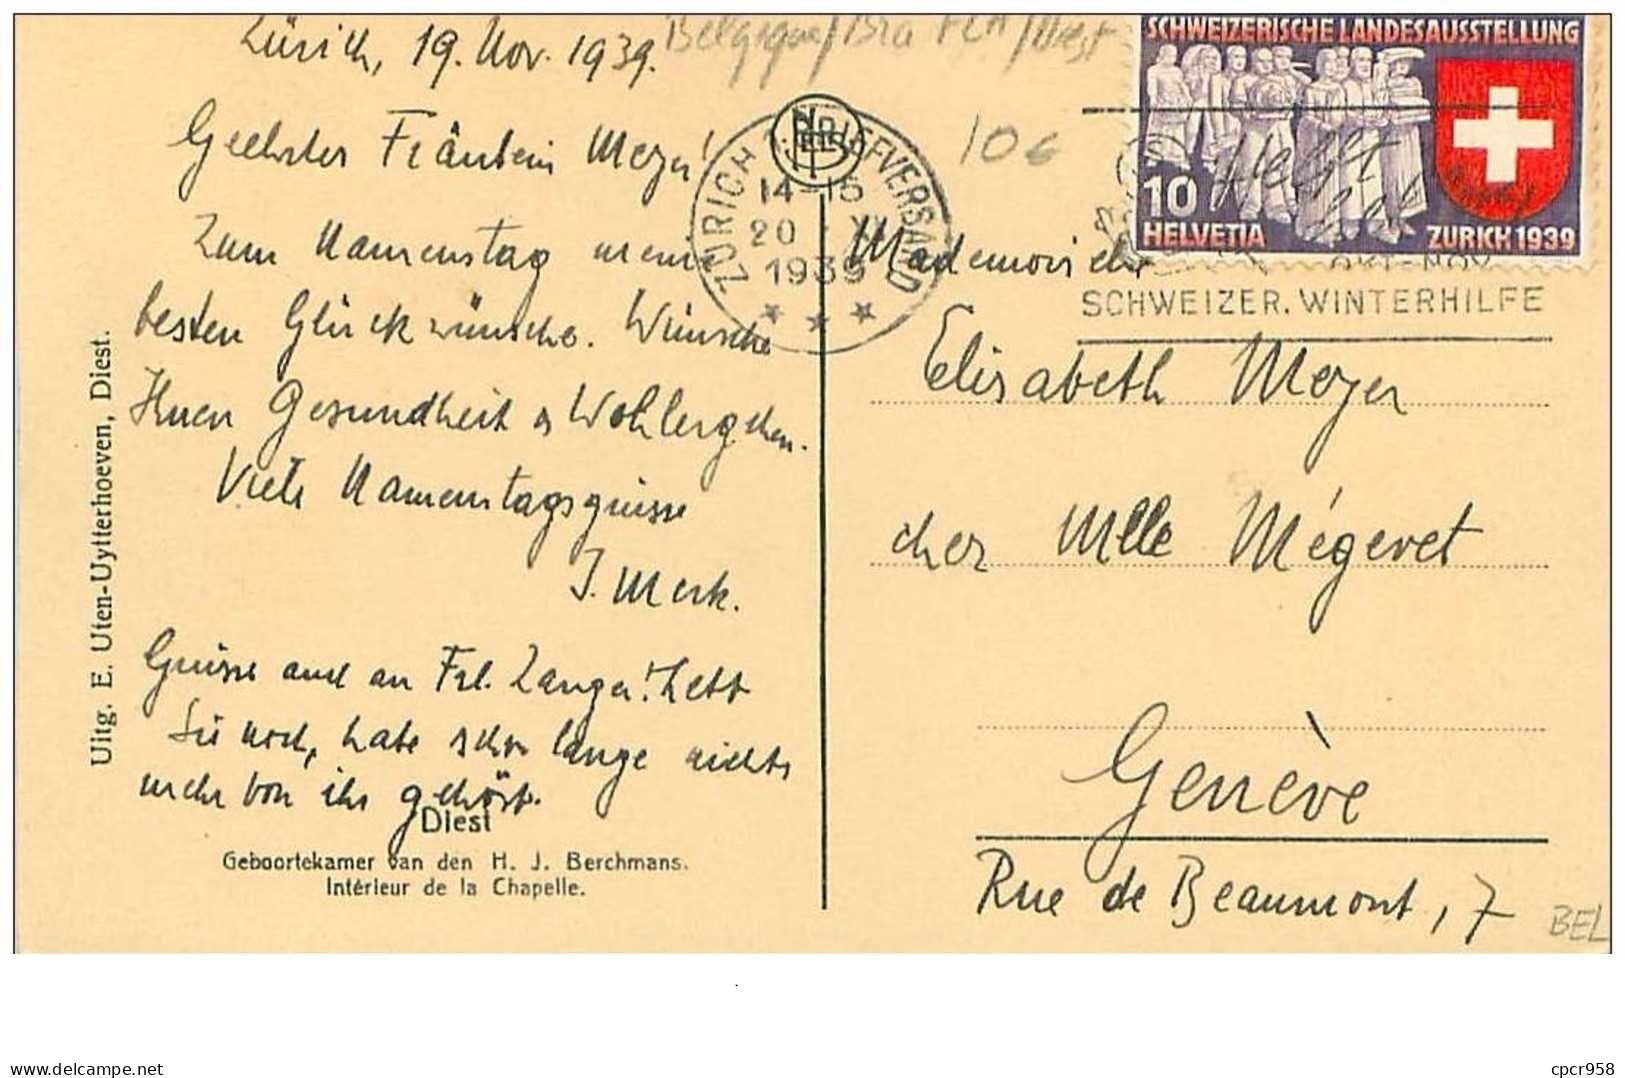 Zürich, 19. Nov. 1939.
Belgique/Bra Fla/Diest
10€
Geehrtes Fräulein Meyer!
Zum Namenstag meine
besten Glückwünsche. Wünsche
Ihnen Gesundheit & Wohlergehen.
Viele Namenstagsgrüsse
J. Merk.
Grüsse auch an Frl. Langer!
Sie noch, habe schon lange nichts
mehr von ihr gehört.
Diest
Geboortekamer van den H. J. Berchmans.
Intérieur de la Chapelle.
Uitg. E. Uten-Uytterhoeven, Diest.
ZÜRICH 1 BRIEFVERSAND
14-15
20 XI
1939
SCHWEIZERISCHE LANDESAUSSTELLUNG
10
HELVETIA
ZÜRICH 1939
Helft
OKT-NOV.
SCHWEIZER. WINTERHILFE
Mademoiselle
Elisabeth Meyer
chez Mlle Mégevet
Genève
Rue de Beaumont, 7
BEL
Image sur le site www.delcampe.net
cpcr958